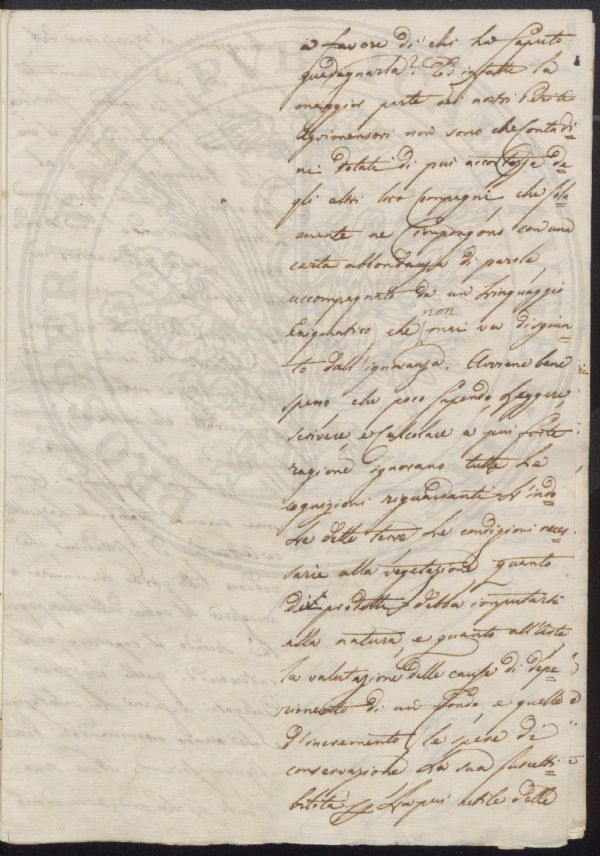 a favore di chi ha saputo
guadagnarla? Ed infatti la
maggior parte dei nostri Periti
Agrimensori non sono che Contadi=
ni dotati di piu accortezza de=
gli altri loro Compagni che sola=
mente ne impongono con una
certa abbondanza di parole
accompagnato da un Linguaggio
Enigmatico che non mai va disgiun=
to dall'ignoranza. Avviene bene
spesso che poco sapendo Leggere,
scrivere, e Calcolare a piu forte
ragione ignorano tutte Le
cognizioni riguardanti L'indo=
le delle terre Le condizioni neces=
sarie alla vegetazione quanto
prodotto debba imputarsi
alla natura, e quanto all'Arte,
la valutazione delle cause di depe=
rimento di un Fondo, e quelle
D'incremento, le spese di
conservazione La sua suscetti=
bilità La piu utile delle